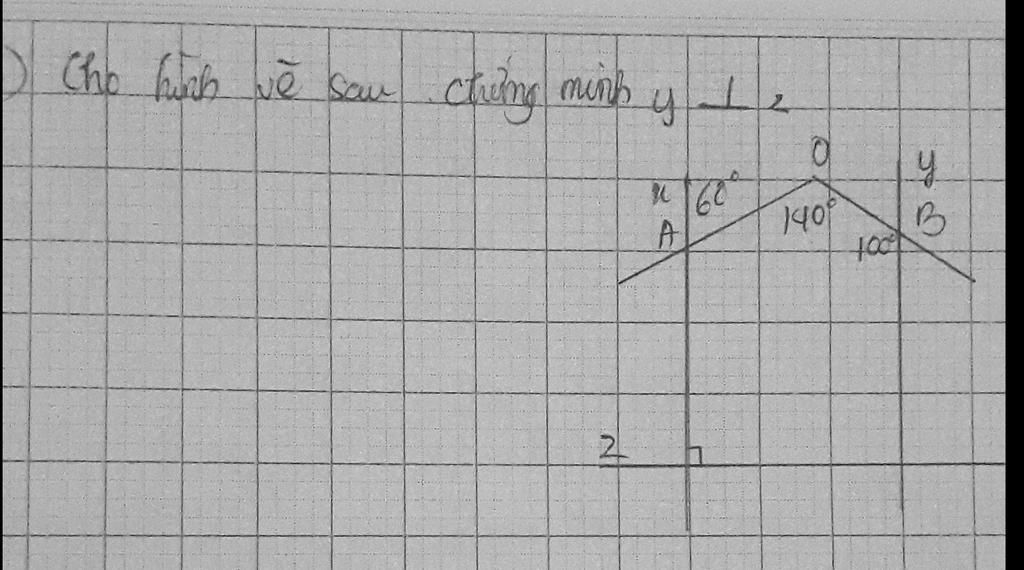 ) Cho hình vẽ sau chứng minh y ⊥ z
O
y
x 60°
140°
A
B
100°
z